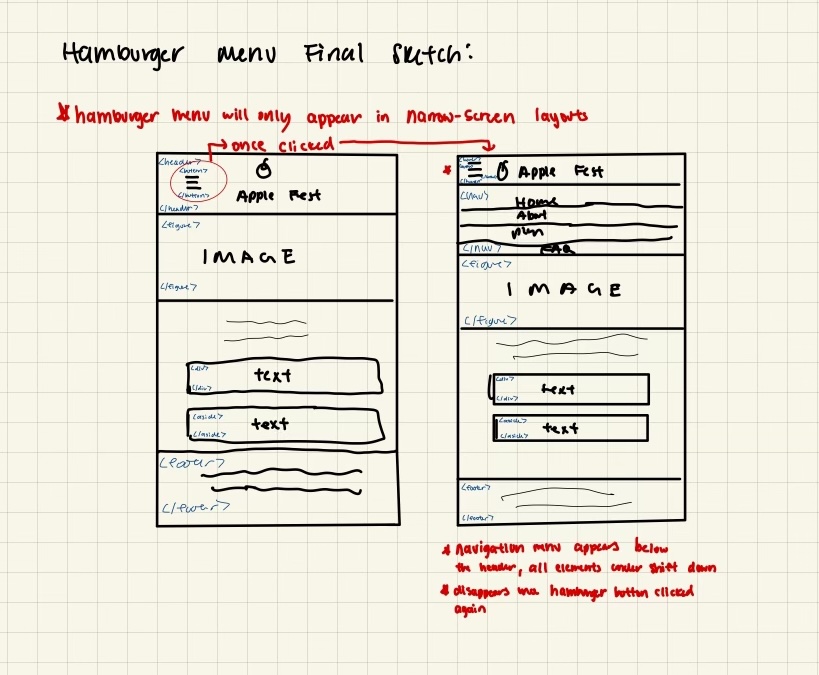 Hamburger menu Final Sketch:
* hamburger menu will only appear in narrow-screen layouts
once clicked
<header>
<button>
</button>
Apple Fest
</header>
<figure>
IMAGE
</figure>
<div>
text
</div>
<aside>
text
</aside>
<footer>
</footer>
*
Apple Fest
<nav>
Home
About
</nav>
FAQ
<figure>
IMAGE
</figure>
<div>
text
</div>
<aside>
text
</aside>
<footer>
</footer>
* navigation menu appears below
the header, all elements under shift down
* disappears once hamburger button clicked
again